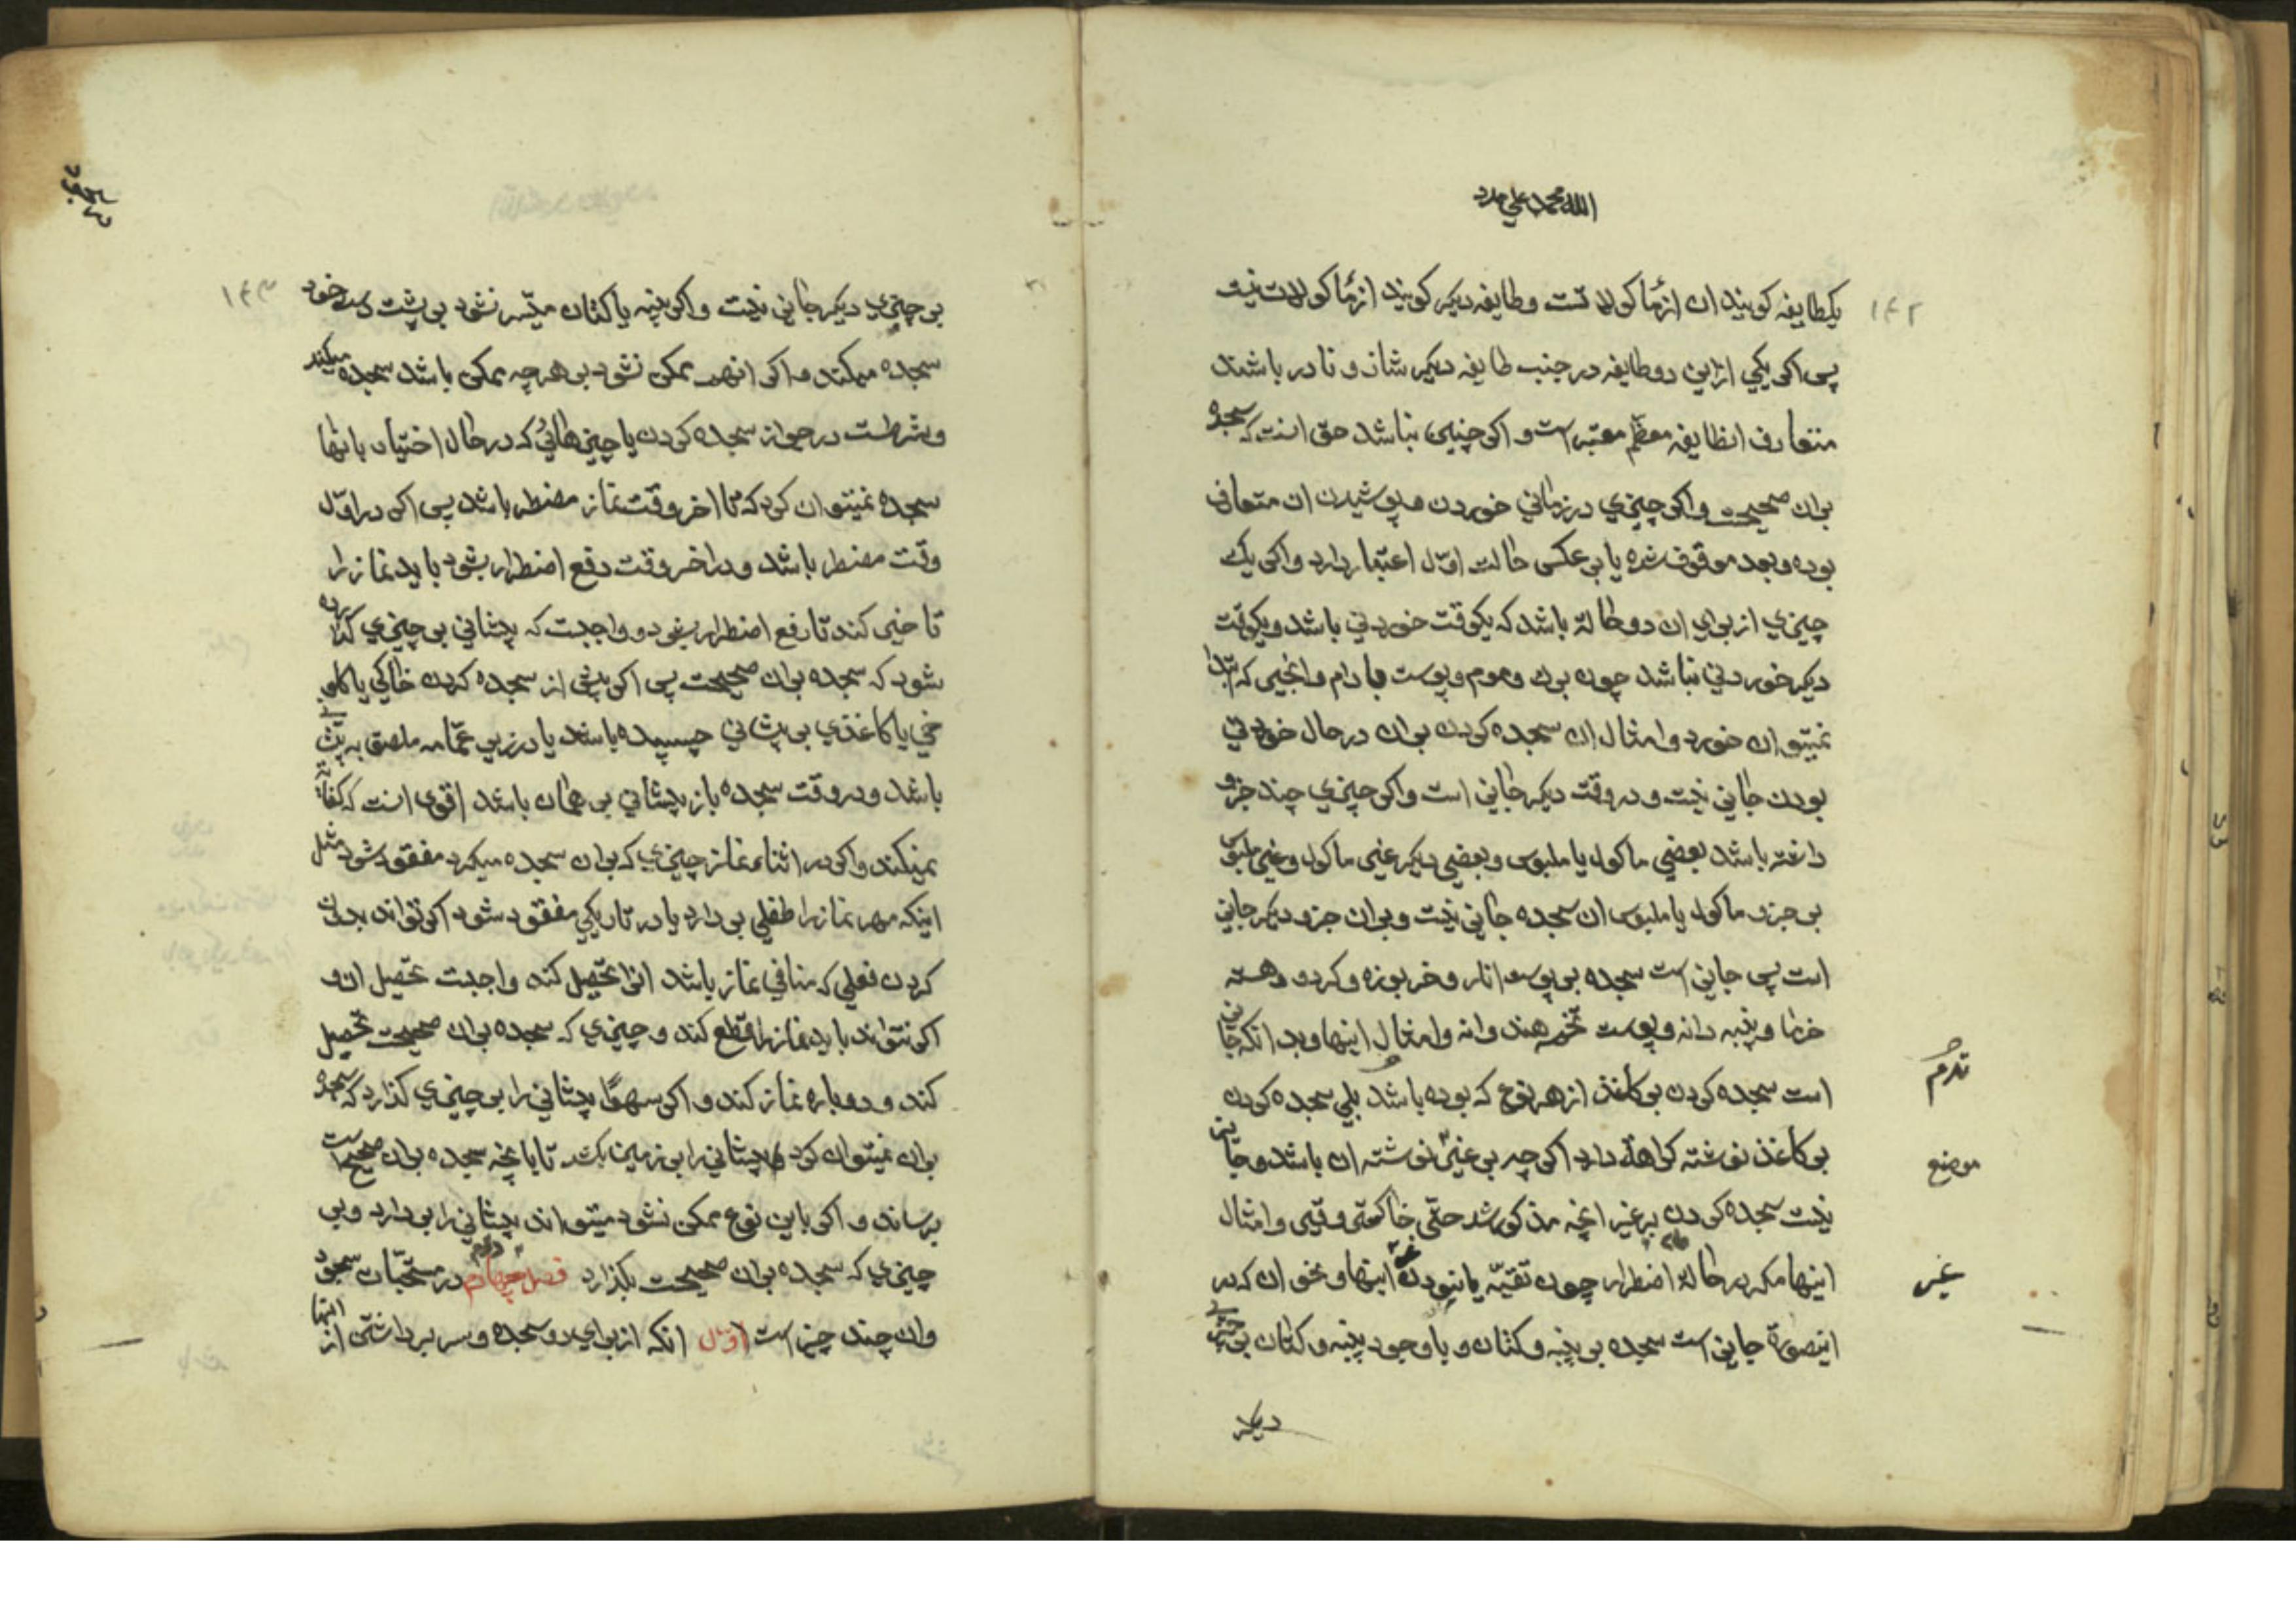 الله محمد علی مدد
۱۴۲
یکطایفه کویند ان از مأکولاتست و طایفه دیکر کویند از مأکولات نیست
پس اکر یکی ازین دو طایفه در جنب طایفه دیکر شاذ و نادر باشند
متعارف انطایفه معظم معتبر است و اکر چنین نباشد حق انست که سجده
بران صحیحست و اکر چیزی در زمانی خوردن و پوشیدن ان متعارف
بوده و بعد موقوف شده یا بر عکس حالت اول اعتبار دارد و اکر یک
چیزی از برای ان دو حالة باشد که یکوقت خوردنی باشد و یکوقت
دیکر خوردنی نباشد چون برك و موم و پوست بادام و انجیر که ابتدا
نمیتوان خورد و امثال ان سجده کردن بران در حال خوردنی
بودن جایز نیست و در وقت دیکر جایز است و اکر چیزی چند جزو
داشته باشد بعضی ماکول یا ملبوس و بعضی دیکر غیر ماکول و غیر ملبوس
بر جزو ماکول یا ملبوس ان سجده جایز نیست و بران جزو دیکر جایز
است پس جایز است سجده بر پوست انار و خربوزه و کردو و هسته
خرما و پنبه دانه و پوست تخمه هندوانه و امثال اینها و بدانکه جایز
است سجده کردن بر کاغذ از هر نوع که بوده باشد بلی سجده کردن
بر کاغذ نوشته کراهة دارد اکر چه بر غیر نوشته ان باشد و جایز
نیست سجده کردن بر غیر انچه مذکور شد حتی خاکستر و قیر و امثال
اینها مکر در حالة اضطرار چون تقیه یا نبودن غیر اینها و نحو ان که در
اینصورة جایز است سجده بر پنبه و کتان و با وجود پنبه و کتان بر چیز
دیکر
موضع
غیر
۱۴۳
بر چیزی دیکر جایز نیست و اکر پنبه یا کتان میسر نشود بر پشت دست خود
سجده میکند و اکر انهم ممکن نشود بر هرچه ممکن باشد سجده میکند
و شرطست در جواز سجده کردن با چیزهائی که در حال اختیار بانها
سجده نمیتوان کرد که تا اخر وقت نماز مضطر باشد پس اکر در اول
وقت مضطر باشد و در اخر وقت دفع اضطرار بشود باید نماز را
تاخیر کند تا رفع اضطرار بشود و واجبست که پیشانی بر چیزی کذارده
شود که سجده بران صحیحست پس اکر پیش از سجده کردن خاکی یا کاه
خی یا کاغذی بر پیشانی چسپیده باشد یا در زیر عمامه ملصق به پیشانی
باشد و در وقت سجده باز پیشانی بر همان باشد اقوی انست که کفایة
نمیکند و اکر در اثناء نماز چیزی که بران سجده میکرد مفقود شود مثل
اینکه مهر نماز را طفلی بر دارد یا در تاریکی مفقود شود اکر تواند بدون
کردن فعلی که منافی نماز باشد انرا تحصیل کند واجبست تحصیل ان و
اکر نتواند باید نماز را قطع کند و چیزی که سجده بران صحیحست تحصیل
کند و دوباره نماز کند و اکر سهوا پیشانی را بر چیزی کذارد که سجده
بران نمیتوان کرد پیشانی را بر زمین بکشد تا بانچه سجده بران صحیح است
برساند و اکر باین نوع ممکن نشود میتواند پیشانی را بر دارد و بر
چیزی که سجده بران صحیحست بکذارد فصل چهاردهم در مستحبات سجود
و ان چند چیز است اول انکه از برای دو سجده و سر برداشتن از انها